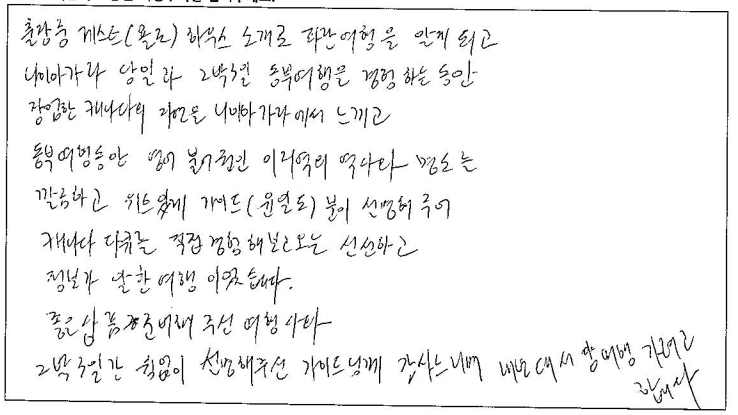 출장중 게스트(욜로) 하우스 소개로 파란여행을 알게 되고
나이아가라 당일과 2박3일 동부여행을 경험하는 동안
장엄한 캐나다의 자연을 나이아가라에서 느끼고
동부여행동안 영어 불어권인 이지역의 역사와
깔끔하고 위트있게 가이드(윤열도)분이 설명해 주어
캐나다 다큐를 직접 경험해보고오는 신선하고
정보가 알찬 여행 이였습니다.
좋은 상품 준비해 주신 여행사와
2박3일간 쉼없이 설명해주신 가이드님께 감사느끼며
합니다